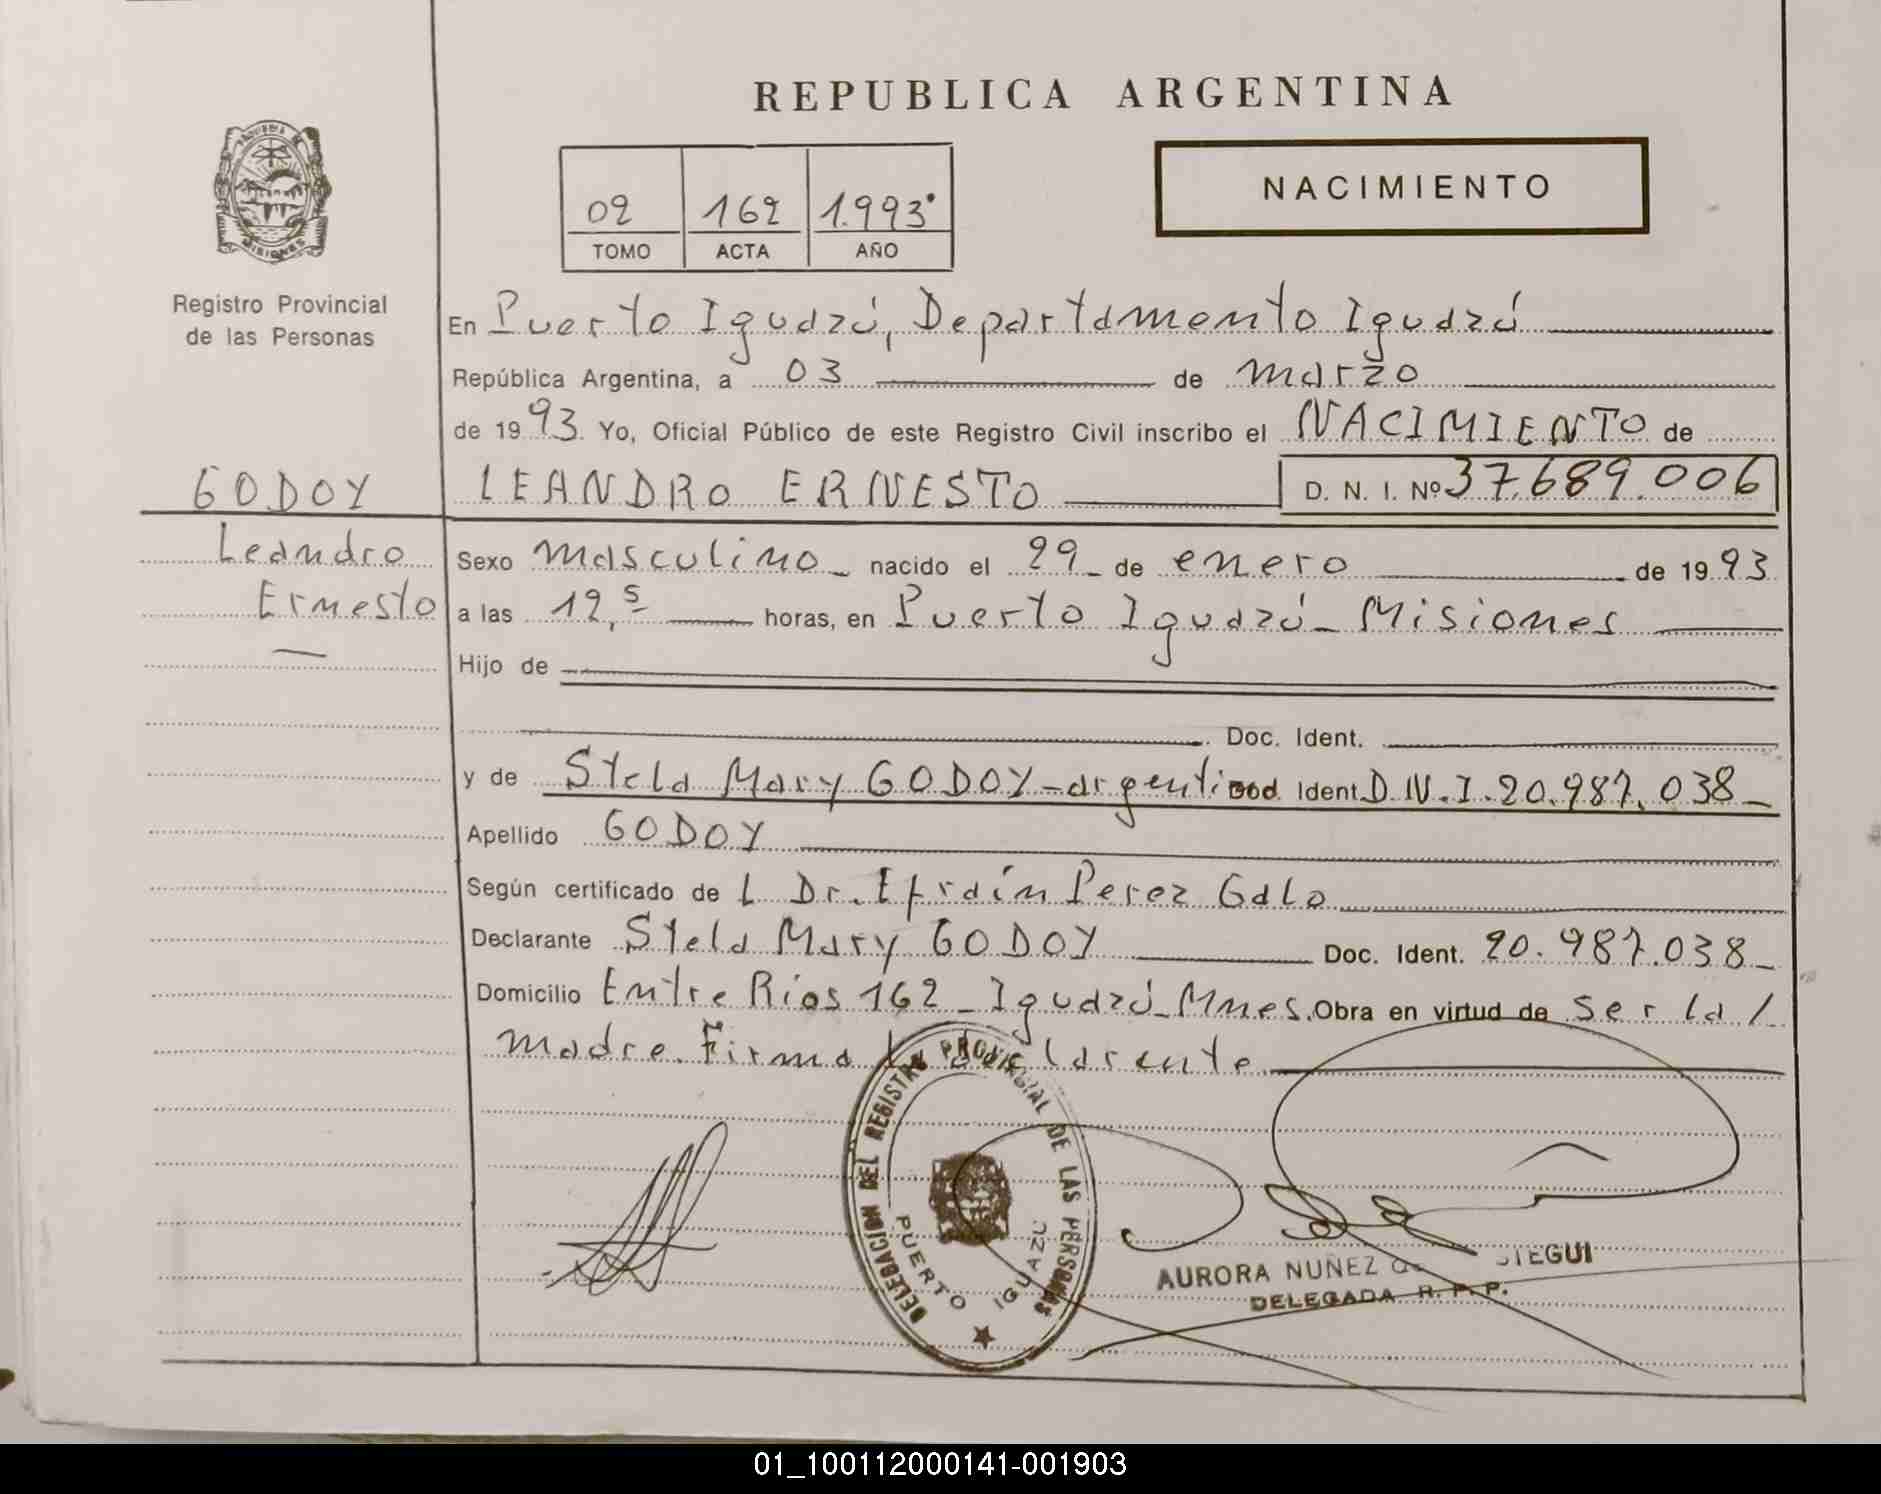 REPUBLICA ARGENTINA
NACIMIENTO
02 162 1.993
TOMO ACTA AÑO
MISIONES
Registro Provincial
de las Personas
En Puerto Iguazú, Departamento Iguazú
República Argentina, a 03 de marzo
de 1993. Yo, Oficial Público de este Registro Civil inscribo el NACIMIENTO de
GODOY LEANDRO ERNESTO D. N. I. Nº 37.689.006
Leandro Sexo masculino nacido el 29 de enero de 1993
Ernesto a las 12,5 horas, en Puerto Iguazú - Misiones
Hijo de
Doc. Ident.
y de Stela Mary GODOY - argentina Doc. Ident. D.N.I. 20.987.038
Apellido GODOY
Según certificado de L Dr. Efraín Perez Galo
Declarante Stela Mary GODOY Doc. Ident. 20.987.038
Domicilio Entre Rios 162 - Iguazú - Mnes. Obra en virtud de ser la /
madre. Firma la declarante
DELEGACION DEL REGISTRO PROVINCIAL DE LAS PERSONAS
PUERTO IGUAZU
AURORA NUÑEZ
DELEGADA R. P. P.
01_100112000141-001903